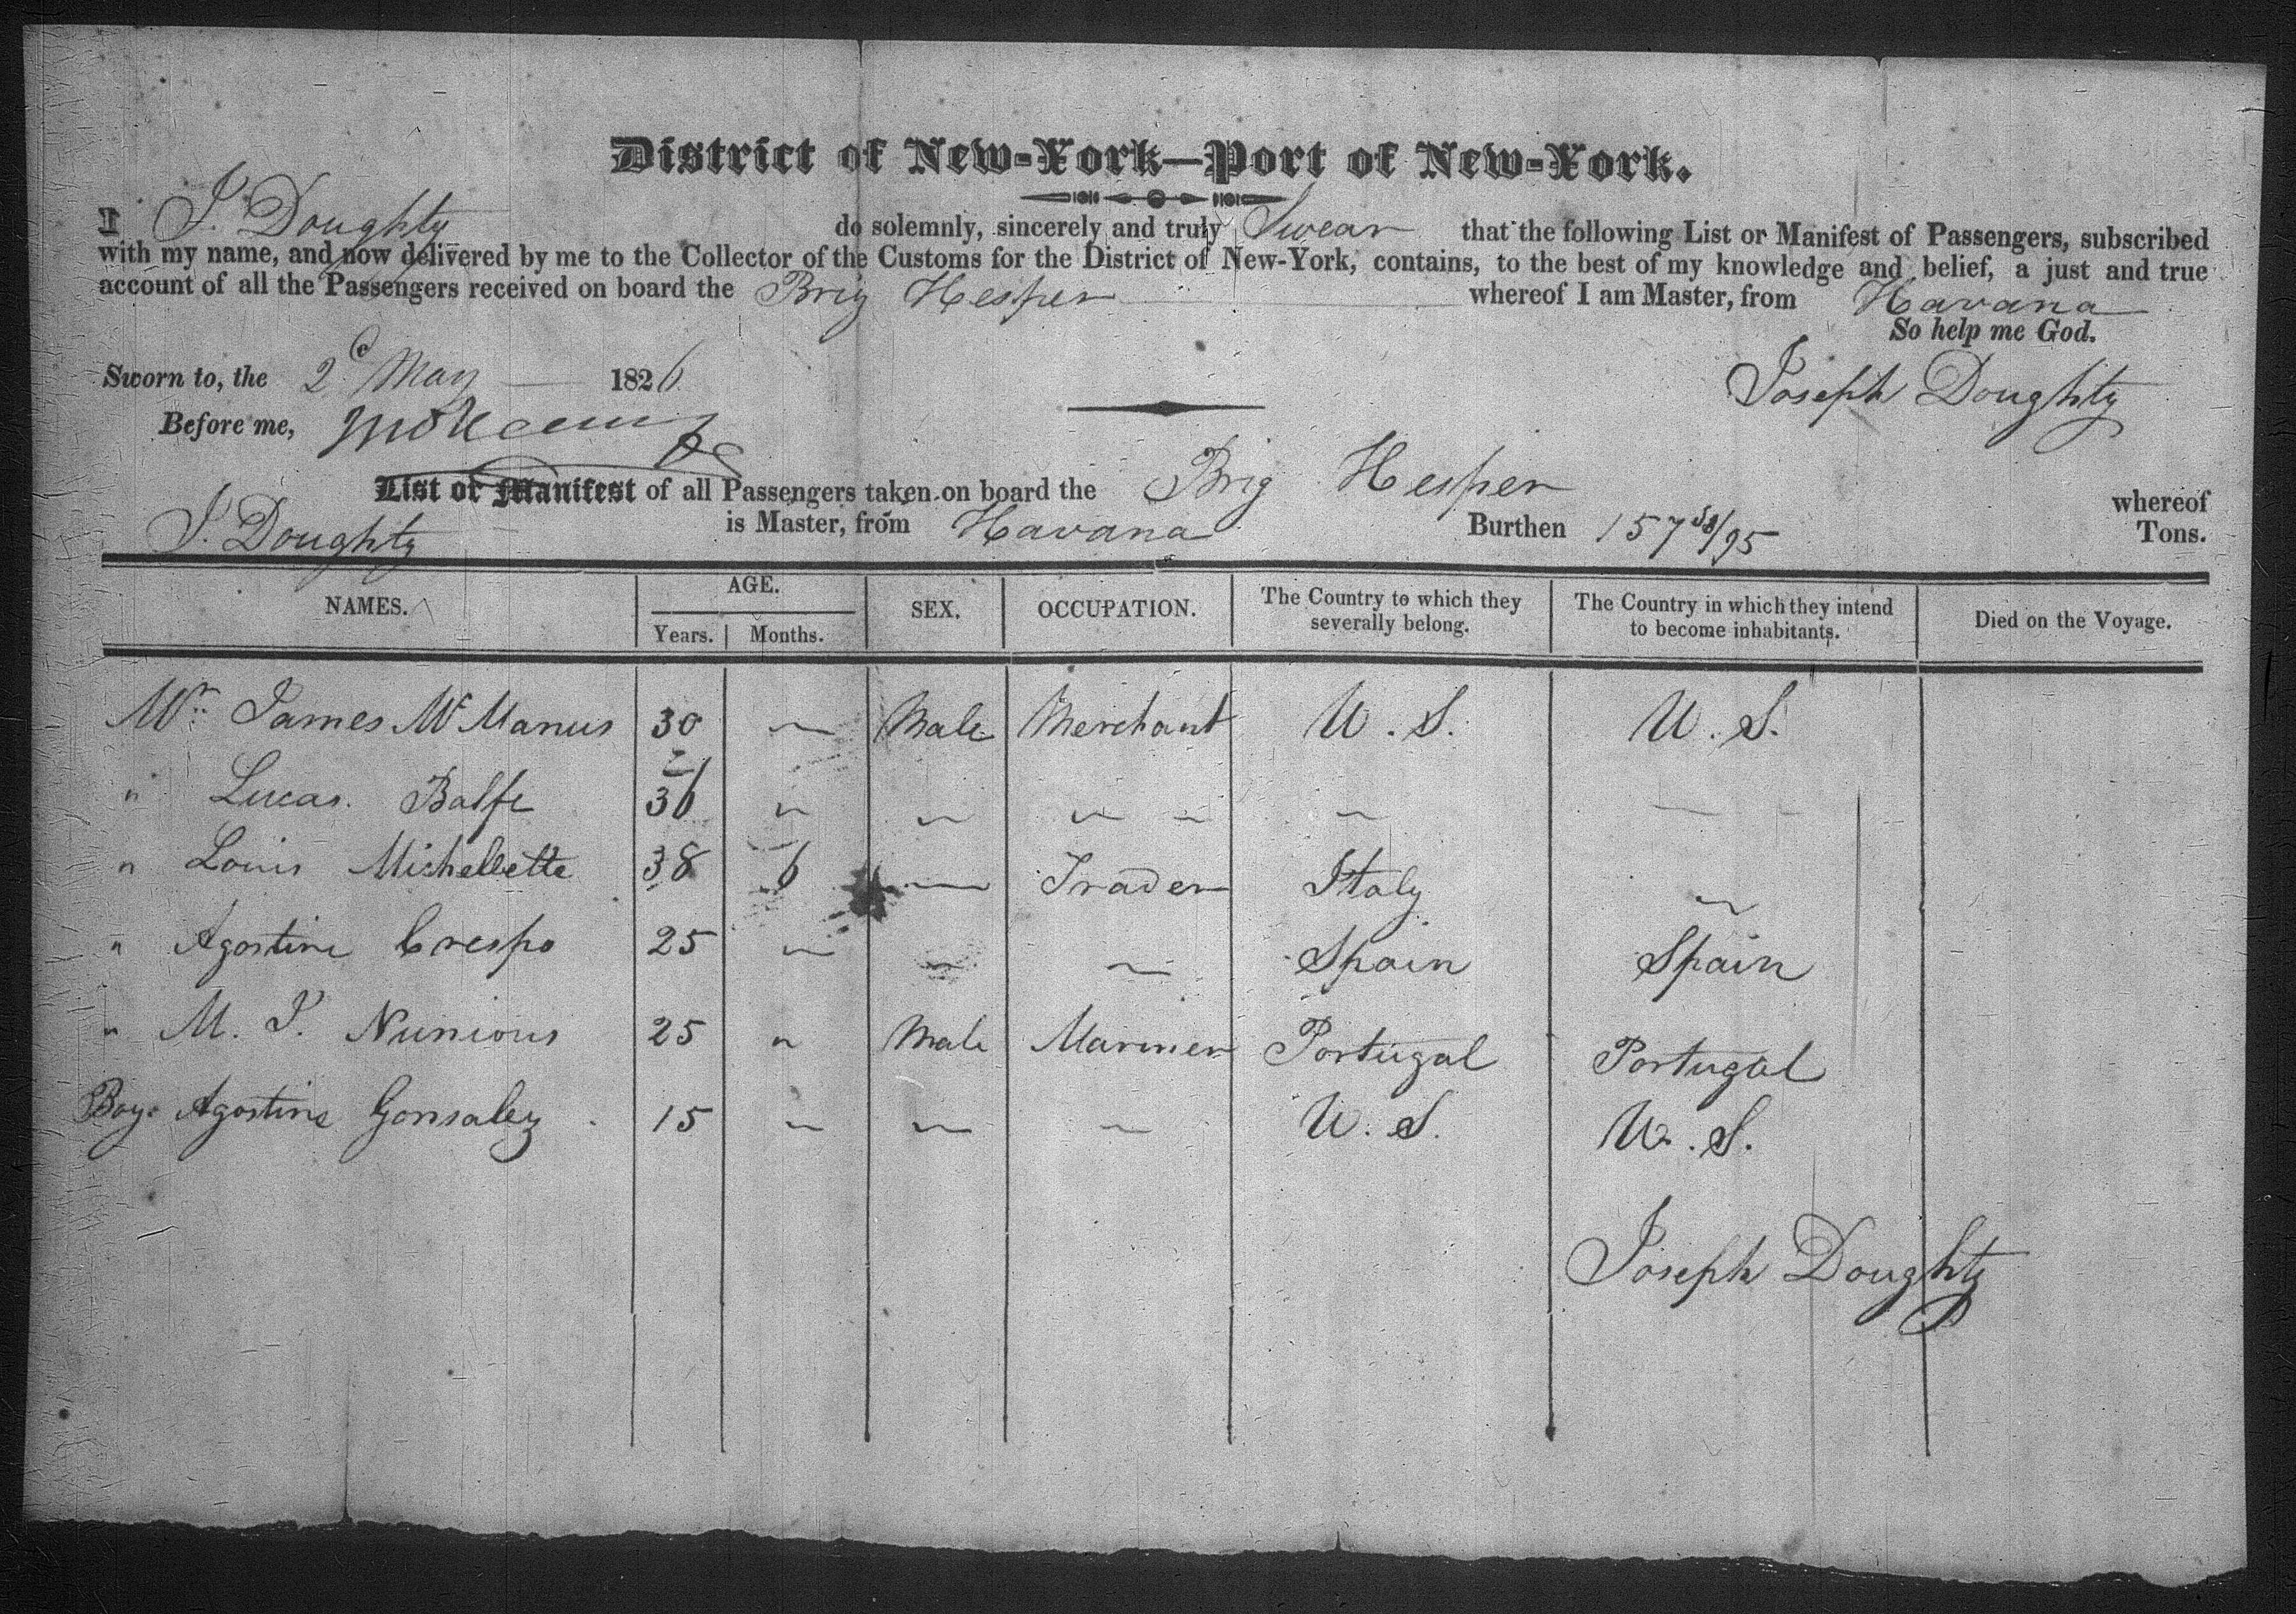 District of New-York—Port of New-York.
I J. Doughty do solemnly, sincerely and truly Swear that the following List or Manifest of Passengers, subscribed
with my name, and now delivered by me to the Collector of the Customs for the District of New-York, contains, to the best of my knowledge and belief, a just and true
account of all the Passengers received on board the Brig Hesper whereof I am Master, from Havana
So help me God.
Sworn to, the 2d May 1826
Joseph Doughty
Before me,
List or Manifest of all Passengers taken on board the Brig Hesper whereof
J. Doughty is Master, from Havana Burthen 157 58/95 Tons.
NAMES. AGE. Years. Months. SEX. OCCUPATION. The Country to which they severally belong. The Country in which they intend to become inhabitants. Died on the Voyage.
Mr. James McManus 30 〃 Male Merchant U.S. U.S.
〃 Lucas. Balfe 36 〃 〃 〃 〃 〃 〃
〃 Louis Michellette 38 6 〃 Trader Italy 〃
〃 Agostine Crespo 25 〃 〃 〃 Spain Spain
〃 M. J. Nunious 25 〃 Male Mariner Portugal Portugal
Boy. Agostine Gonsalez 15 〃 〃 〃 U.S. U.S.
Joseph Doughty